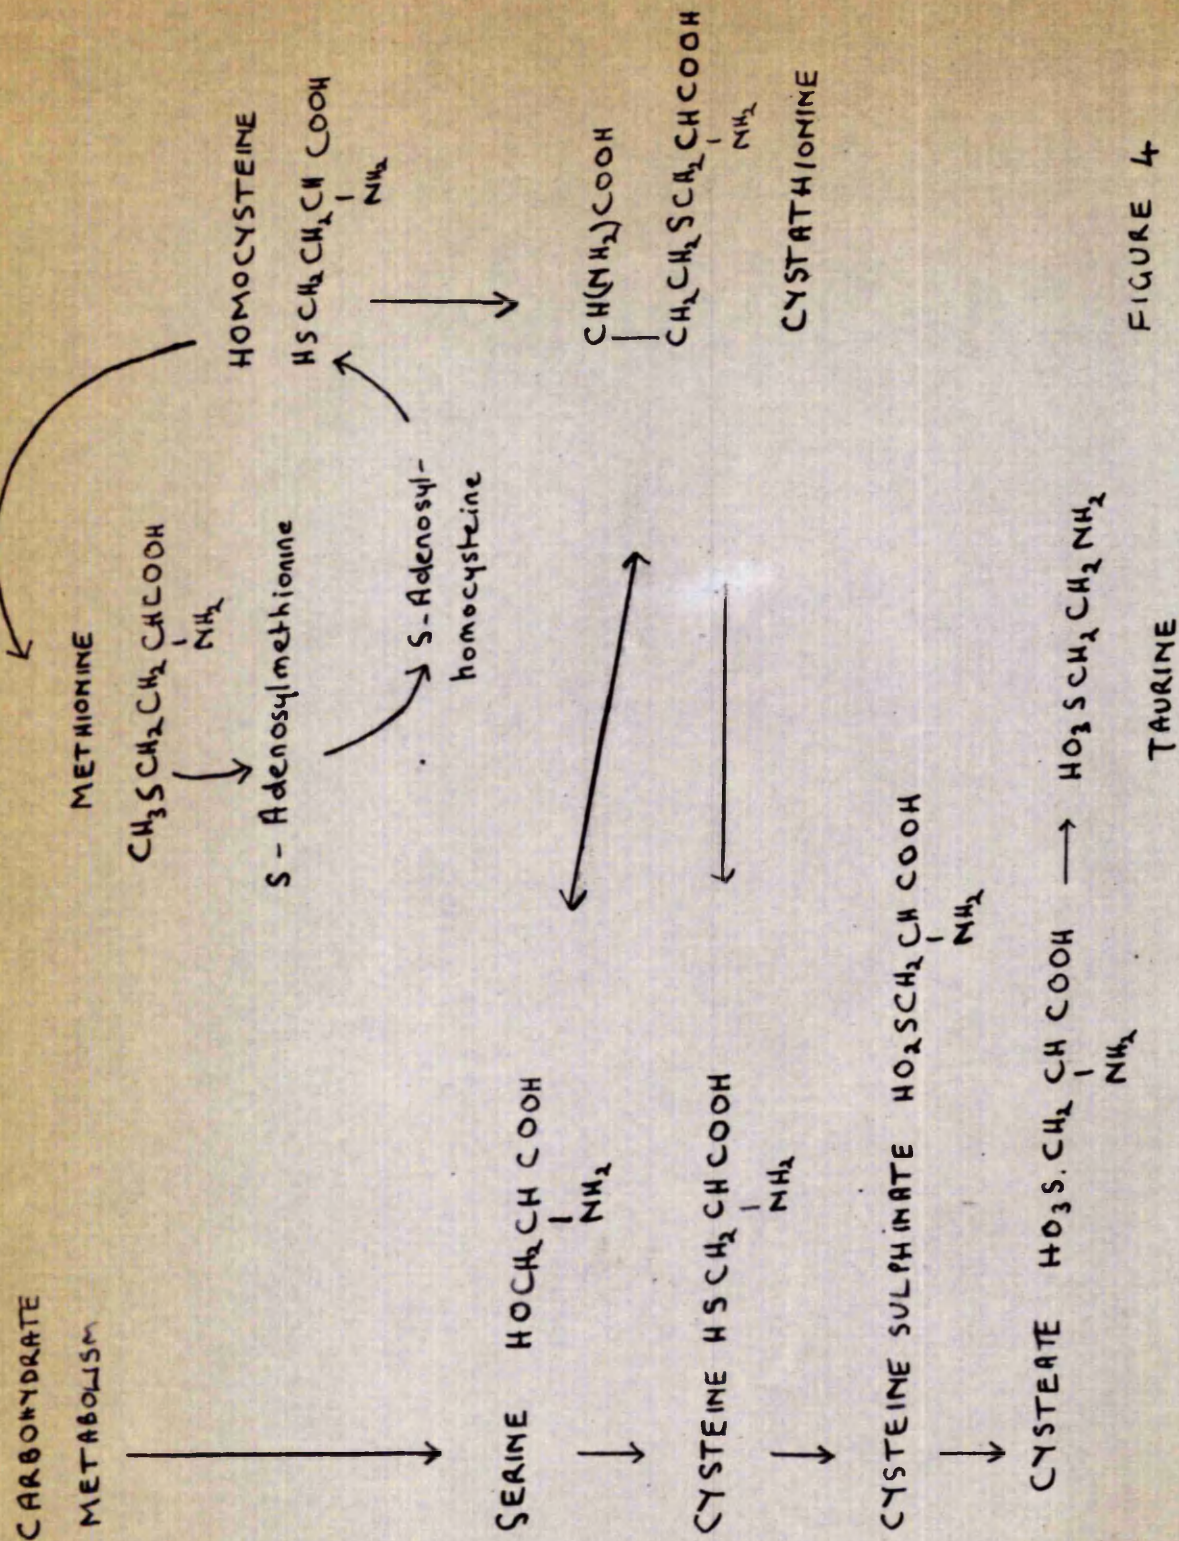 CARBOHYDRATE
METABOLISM
METHIONINE
CH₃SCH₂CH₂CHCOOH
NH₂
S - Adenosylmethionine
S - Adenosyl-
homocysteine
HOMOCYSTEINE
HSCH₂CH₂CH COOH
NH₂
SERINE HOCH₂CH COOH
NH₂
CH(NH₂)COOH
CH₂CH₂SCH₂CHCOOH
NH₂
CYSTATHIONINE
CYSTEINE HSCH₂CHCOOH
NH₂
CYSTEINE SULPHINATE HO₂SCH₂CH COOH
NH₂
CYSTEATE HO₃S.CH₂ CH COOH → HO₃SCH₂CH₂NH₂
NH₂
TAURINE
FIGURE 4